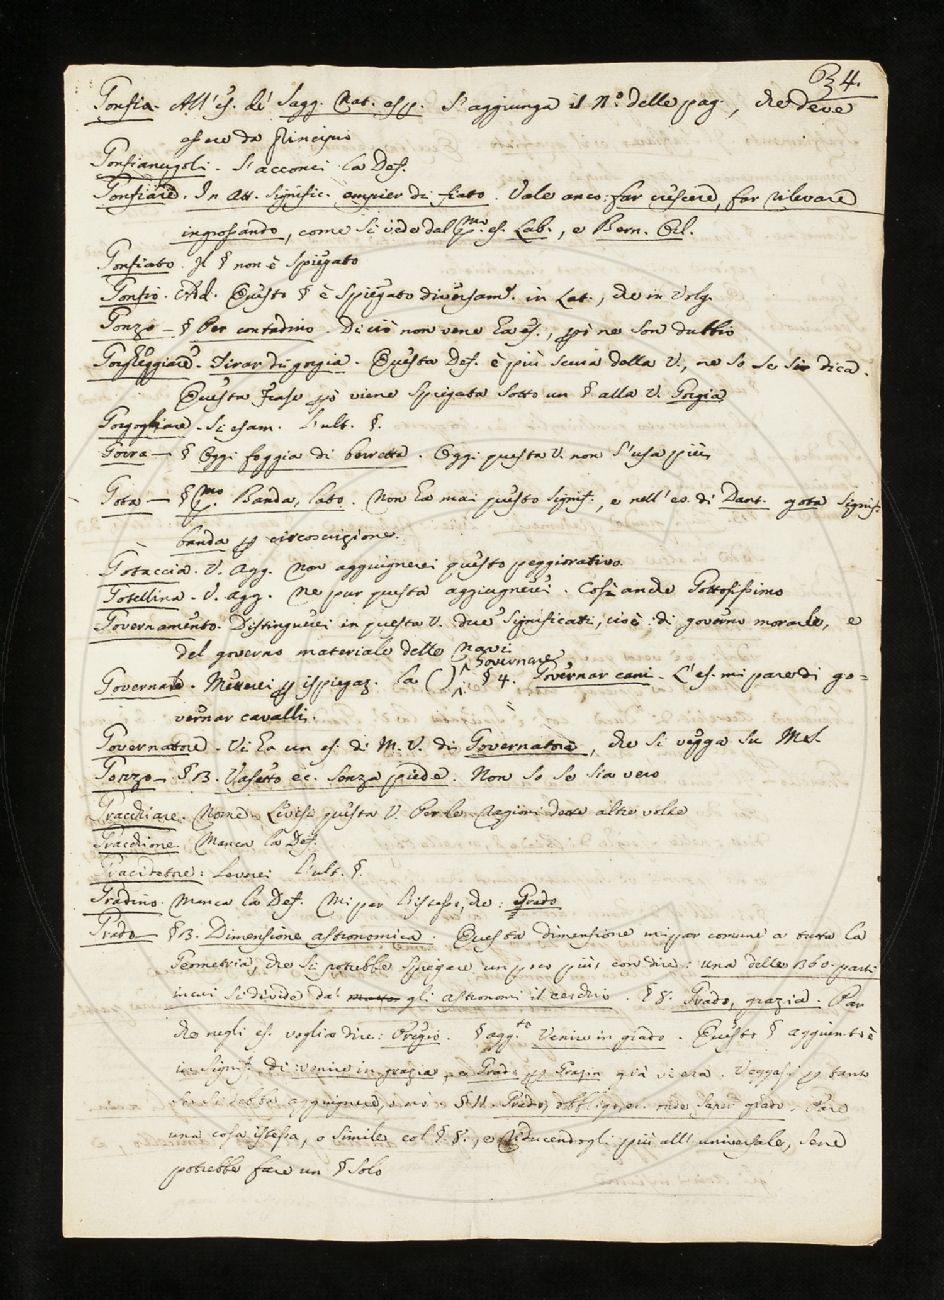 34.
Gonfia. All'es. de' Sagg. Nat. esp. S'aggiunga il N.º delle pag., che deve
essere da principio
Gonfianugoli. S'acconci la Def.
Gonfiare. In att. signific. empier di fiato. Vale anco: far crescere, far rilevare
ingrossando, come si vede dal pmo. es. Lab., e Bern. Orl.
Gonfiato. Il § non è spiegato
Gonfio. Ad. Questo § è spiegato diversamte. in Lat., che in Volg.
Gonzo — § Per contadino. Di ciò non vene ha es., pò ne son dubbio
Gorgheggiare. Tirar di gorgia. Questa Def. è più scura della V., ne so se si dica.
Questa frase pò viene spiegata sotto un § alla V. Gorgia
Gorgogliare. Si esam. l'ult. §.
Gorra — § Oggi foggia di berretta. Oggi questa V. non s'usa più
Gota — § pmo. Banda, lato. Non ha mai questo signif., e nell'es. di Dant. gota signif.
banda p circoscrizione.
Gotaccia. V. Agg. Non aggiugnerei questo peggiorativo.
Gotellina. V. agg. Ne pur questa aggiugnerei. Così anche Gottosissimo
Governamento. Distinguerei in questa V. due significati, cioè: di governo morale, e
del governo materiale delle Navi.
Governare. Metterei p ispiegaz. la ( ) Governare § 4. Governar cani. L'es. mi pare di go=
vernar cavalli.
Governatore. Vi ha un es. di M. V. di Governatora, che si vegga su Mss.
Gozzo — § 3. Vasetto ec. senza piede. Non so se sia vero
Gracchiare. Ne leverei questa V. per le ragioni dette altre volte
Gracchione. Manca la Def.
Gracidatore: Leverei l'ult. §.
Gradino. Manca la Def. Mi par l'istesso, che: Grado
Grado — § 3. Dimensione astronomica. Questa dimensione mi par comune a tutta la
Geometria, che si potrebbe spiegare un poco più con dire: una delle 360. parti
in cui si divide da' gli astronomi il cerchio. § 8. Grado, grazia. Par
che negli es. voglia dire: Pregio. § aggto. Venire in grado. Questo § aggiunto è
in signif. di: venire in grazia, e Grado p Grazia già vi era. Veggasi p tanto
che si debba aggiugnere, o nò e § 11. Grado, obbligo, ec. onde saper grado. Pare
una cosa istessa, o simile col § 8., e riducendogli più all'universale, sene
potrebbe fare un § solo